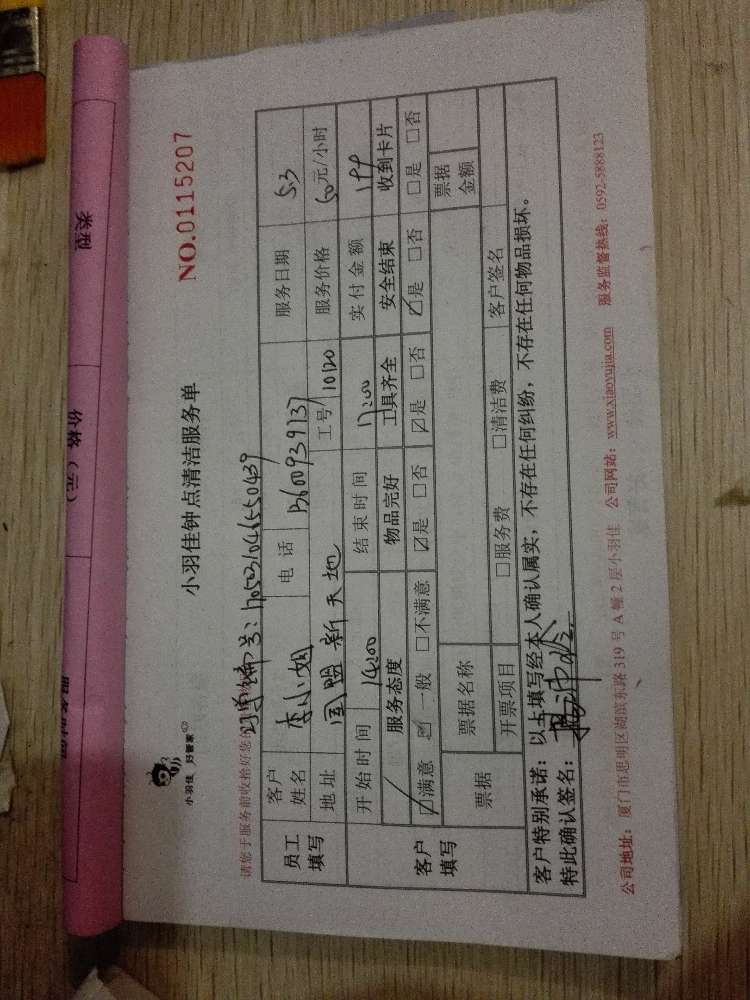 类型
价格（元）
小羽佳 好管家
小羽佳钟点清洁服务单
NO.0115207
请您于服务前收拾好您的
员工填写
客户姓名 李小姐 电话 13600939137 服务日期 5.3
地址 国盟新天地 工号 10120 服务价格 50元/小时
客户填写
开始时间 14:00 结束时间 17:00 实付金额
服务态度 物品完好 工具齐全 安全结束 收到卡片
☑满意 一般 □不满意 ☑是 □否 ☑是 □否 ☑是 □否 □是 □否
票据 票据名称 票据金额
开票项目 □服务费 □清洁费 客户签名
客户特别承诺：以上填写经本人确认属实，不存在任何纠纷，不存在任何物品损坏。
特此确认签名：
公司地址：厦门市思明区湖滨东路 319 号 A 幢 2 层小羽佳 公司网站：www.xiaoyujia.com 服务监督热线：0592-5888123